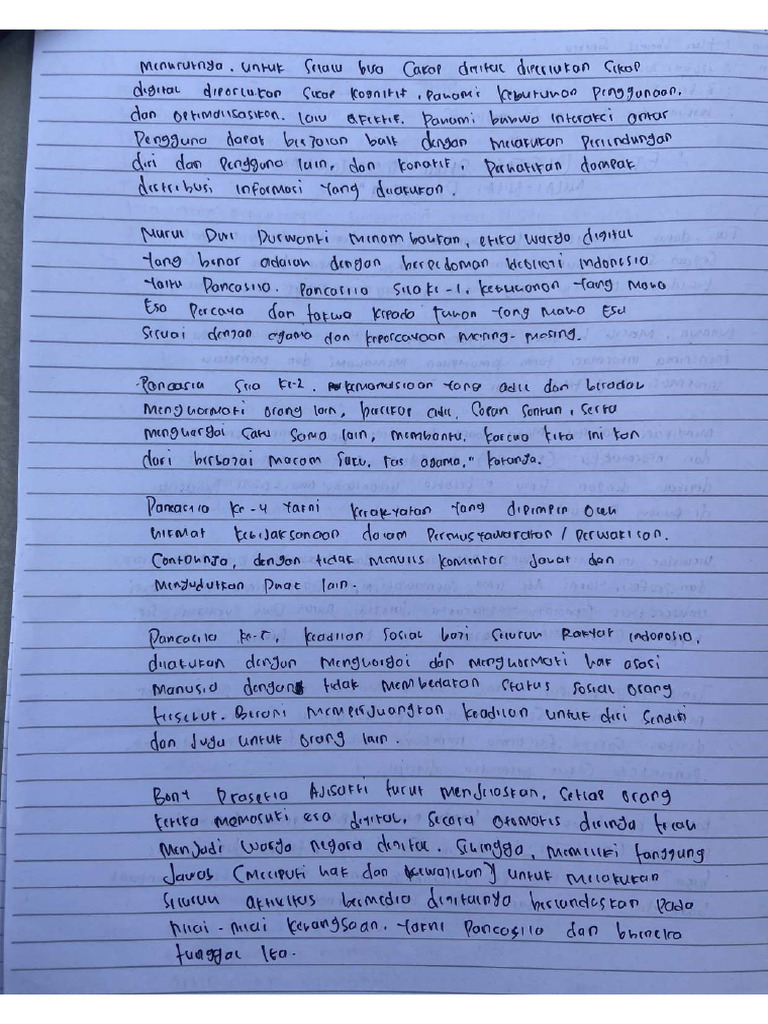 Menurutnya, untuk selalu bisa Cakap digital diperlukan sikap
digital diperlukan sikap kognitif, pahami kebutuhan penggunaan,
dan optimalisasikan. lalu afektif. Pahami bahwa interaksi antar
Pengguna dapat berjalan baik dengan melakukan perlindungan
diri dan pengguna lain, dan konatif, perhatikan dampak
distribusi informasi yang dilakukan.
Nurul Dwi Purwanti menambahkan, etika wargo digital
Yang benar adalah dengan berpedoman ideologi indonesia
Yaitu Pancasila. Pancasila Sila ke-1, ketuhanan Yang Maha
Esa Percaya dan takwa kepada Tuhan Yang Maha Esa
Sesuai dengan agama dan kepercayaan masing-masing.
-Pancasila Sila ke-2. kemanusiaan yang adil dan beradab
Menghormati orang lain, bersikap adil, Sopan Santun, serta
menghargai satu sama lain, membantu, karena kita ini kan
dari berbagai macam suku, ras agama," katanya.
Pancasila ke-4 yakni kerakyatan yang dipimpin oleh
hikmat kebijaksanaan dalam Permusyawaratan / perwakilan.
Contohnya, dengan tidak menulis komentar jahat dan
Menyudutkan pihak lain.
Pancasila ke-5, keadilan sosial bagi seluruh Rakyat indonesia,
dilakukan dengan menghargai dan menghormati hak asasi
manusia dengan tidak membedakan status sosial orang
tersebut. Berani memperjuangkan keadilan untuk diri sendiri
dan juga untuk orang lain.
Bony Prasetia Ajisakti turut menjelaskan, setiap orang
ketika memasuki era digital, secara otomatis dirinya telah
menjadi warga negara digital. Sehingga, memiliki tanggung
Jawab (meliputi hak dan kewajiban) untuk melakukan
seluruh aktivitas bermedia digitalnya berlandaskan pada
nilai-nilai kebangsaan. Yakni Pancasila dan bhineka
tunggal Ika.